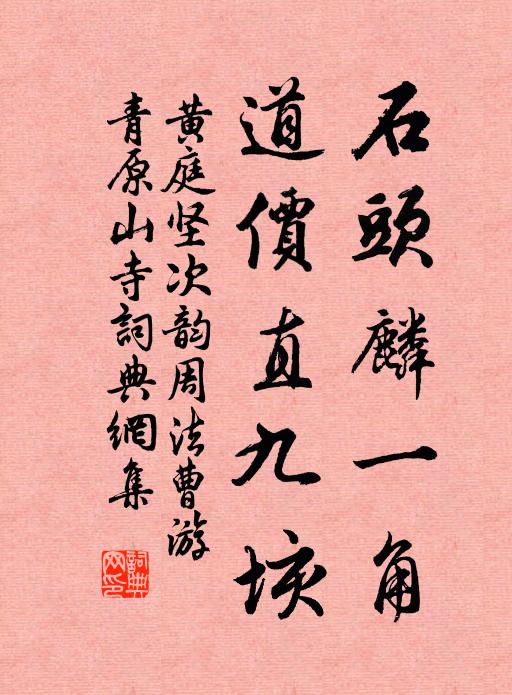 石頭麟一角
道價直九垓
黄庭坚次韵周法曹游
青原山寺詞典網集
詞典网印